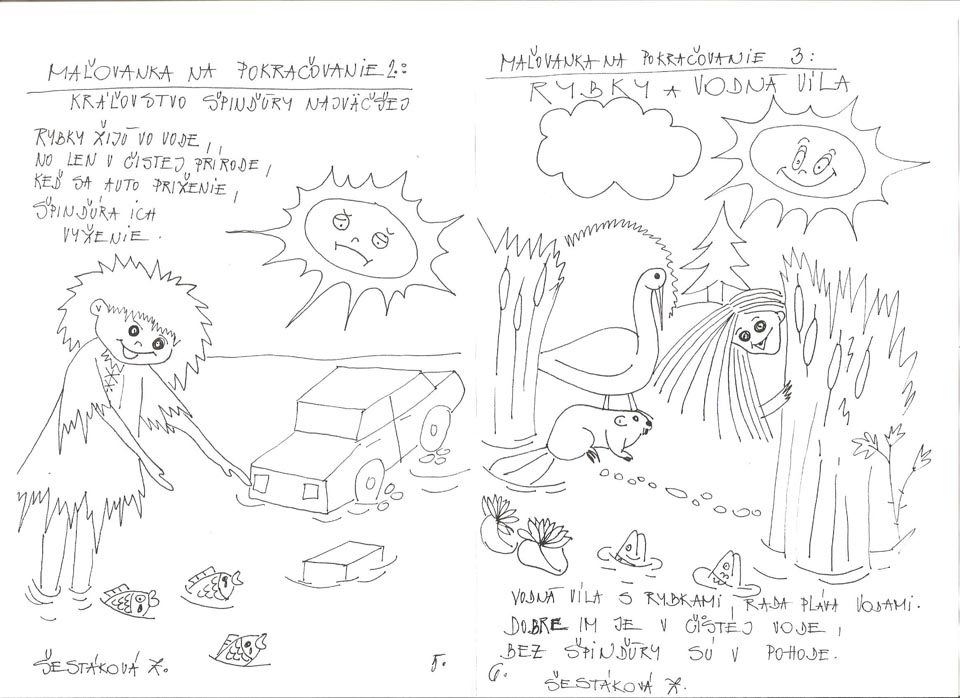 MAĽOVANKA NA POKRAČOVANIE 2.:
KRÁĽOVSTVO ŠPINDÚRY NAJVÄČŠEJ
RYBKY ŽIJÚ VO VODE,
NO LEN V ČISTEJ PRÍRODE,
KEĎ SA AUTO PRIŽENIE,
ŠPINDÚRA ICH
VYŽENIE.
ŠESTÁKOVÁ Ž.
5.
MAĽOVANKA NA POKRAČOVANIE 3:
RYBKY A VODNÁ VÍLA
VODNÁ VÍLA S RYBKAMI, RADA PLÁVA VODAMI.
DOBRE IM JE V ČISTEJ VODE,
BEZ ŠPINDÚRY SÚ V POHODE.
6.
ŠESTÁKOVÁ Ž.